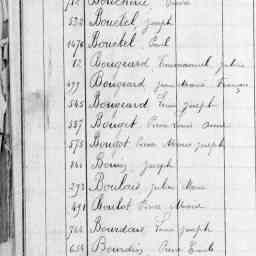 572 Bouchel Joseph
1476 Bouckel Paul
12 Bougeard Emmanuel Julien
499 Bougeard Jean Marie François
545 Bougeard Louis Joseph
537 Bouget Pierre Louis Anne
575 Bougot Pierre Marie Joseph
141 Bouin Joseph
293 Boulais Julien Marie
491 Boulot Pierre Marie
764 Bourdais Louis Joseph
654 Bourdin Pierre Emile